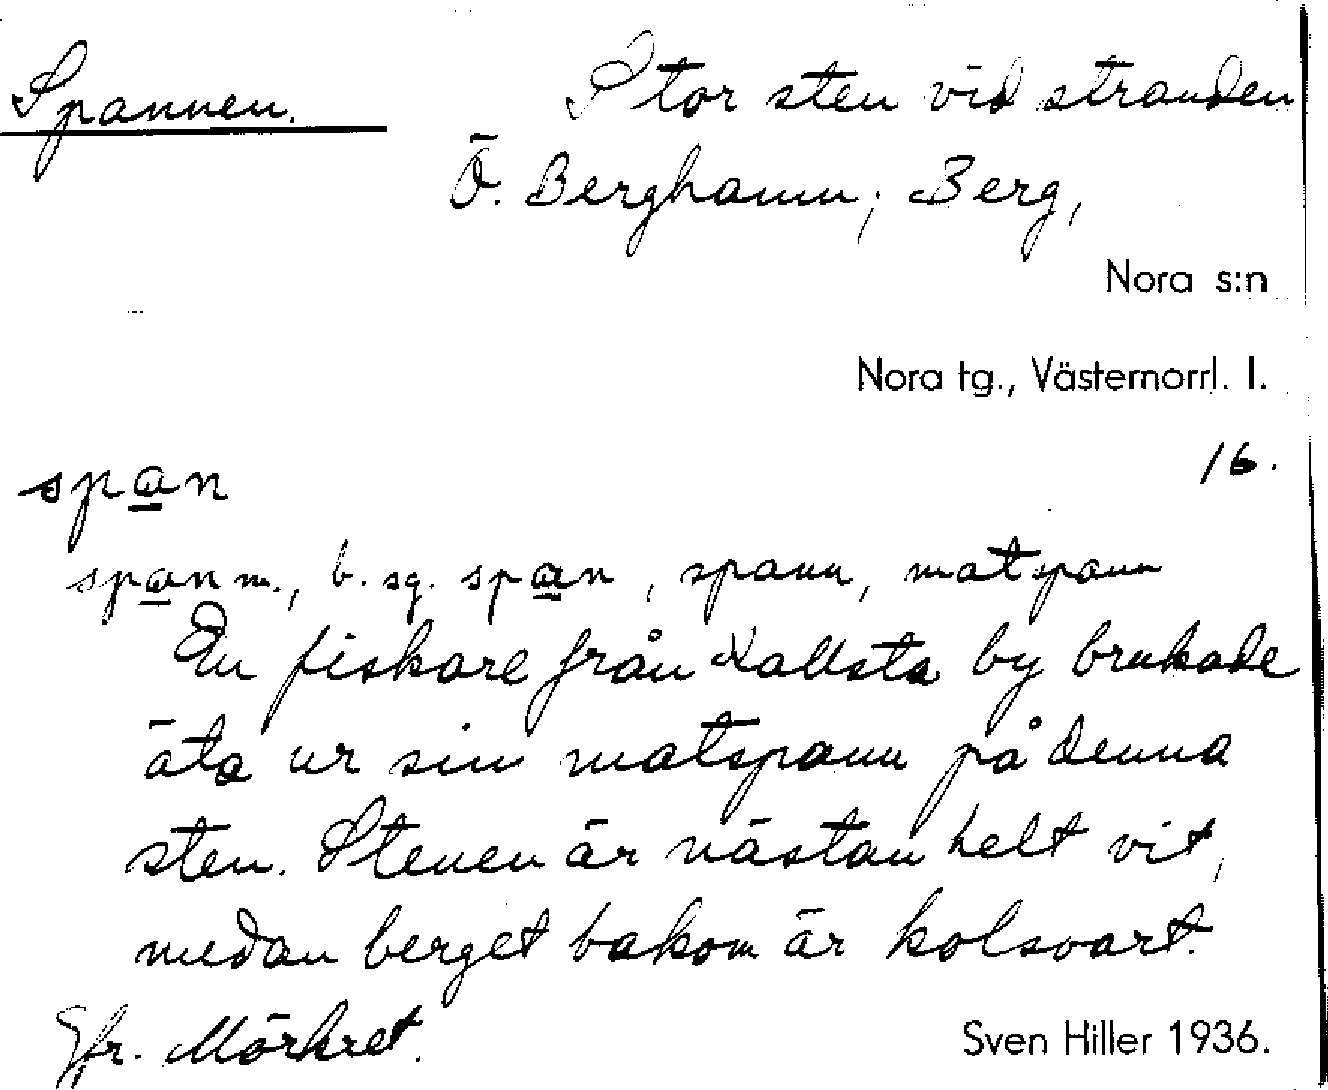 Spannen. Stor sten vid stranden
Ö. Berghamn; Berg,
Nora s:n
Nora tg., Västernorrl. l.
16.
span
span m., b. sg. span, spann, matspann
En fiskare från Kallsta by brukade
äta ur sin matspann på denna
sten. Stenen är nästan helt vit,
medan berget bakom är kolsvart.
Jfr. Mörkret.
Sven Hiller 1936.